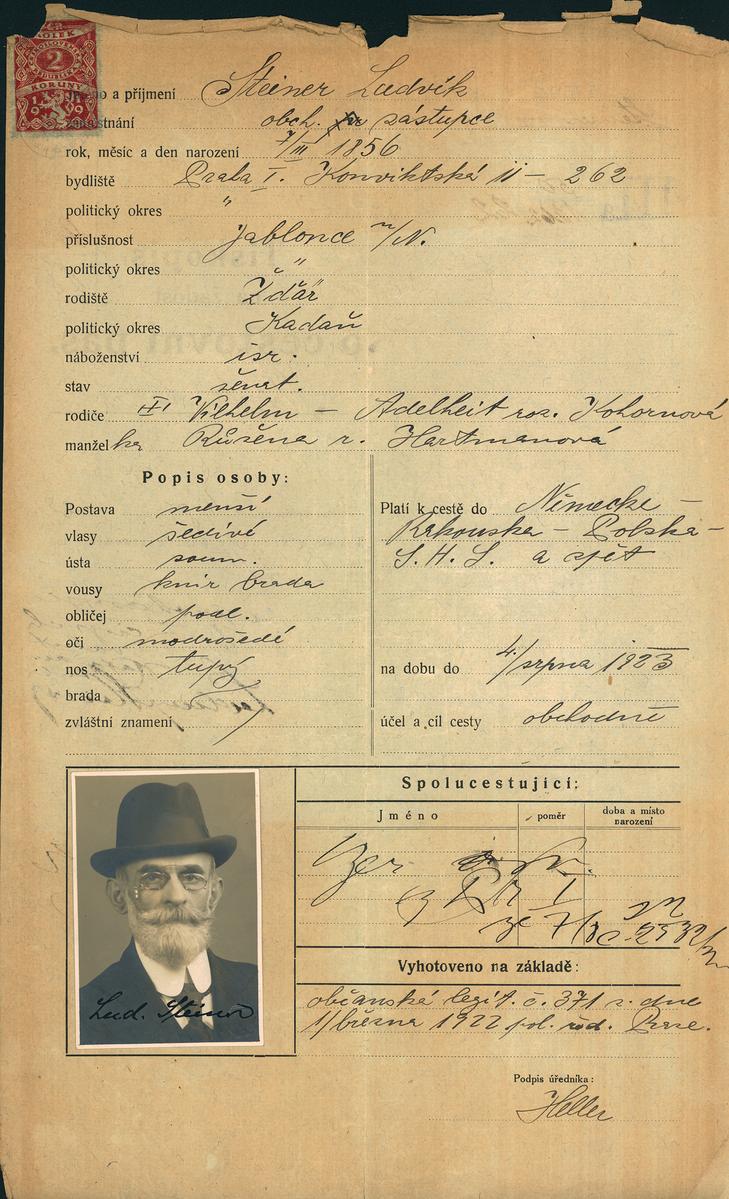 2
KORUNY
1919
Jméno a příjmení Steiner Ludvík
zaměstnání obch. zástupce
rok, měsíc a den narození 7/III 1856
bydliště Praha I. Konviktská 11 – 262
politický okres "
příslušnost Jablonec n/N.
politický okres "
rodiště Žďár
politický okres Kadaň
náboženství isr.
stav ženat.
rodiče Vilhelm – Adelheit roz. Kohornová
manžel ka Růžena r. Hartmanová
Popis osoby:
Postava menší
vlasy šedivé
ústa soum.
vousy knír brada
obličej podl.
oči modrošedé
nos tupý
brada
zvláštní znamení
Platí k cestě do Německa –
Rakouska – Polska –
S. H. S. a zpět
na dobu do 4/srpna 1923
účel a cíl cesty obchodně
Spolucestující:
Jméno
poměr
doba a místo
narození
Lud. Steiner
Vyhotoveno na základě:
občanská legit. č. 371 z. dne
1/března 1922 pol. řed. Praze.
Podpis úředníka:
Heller